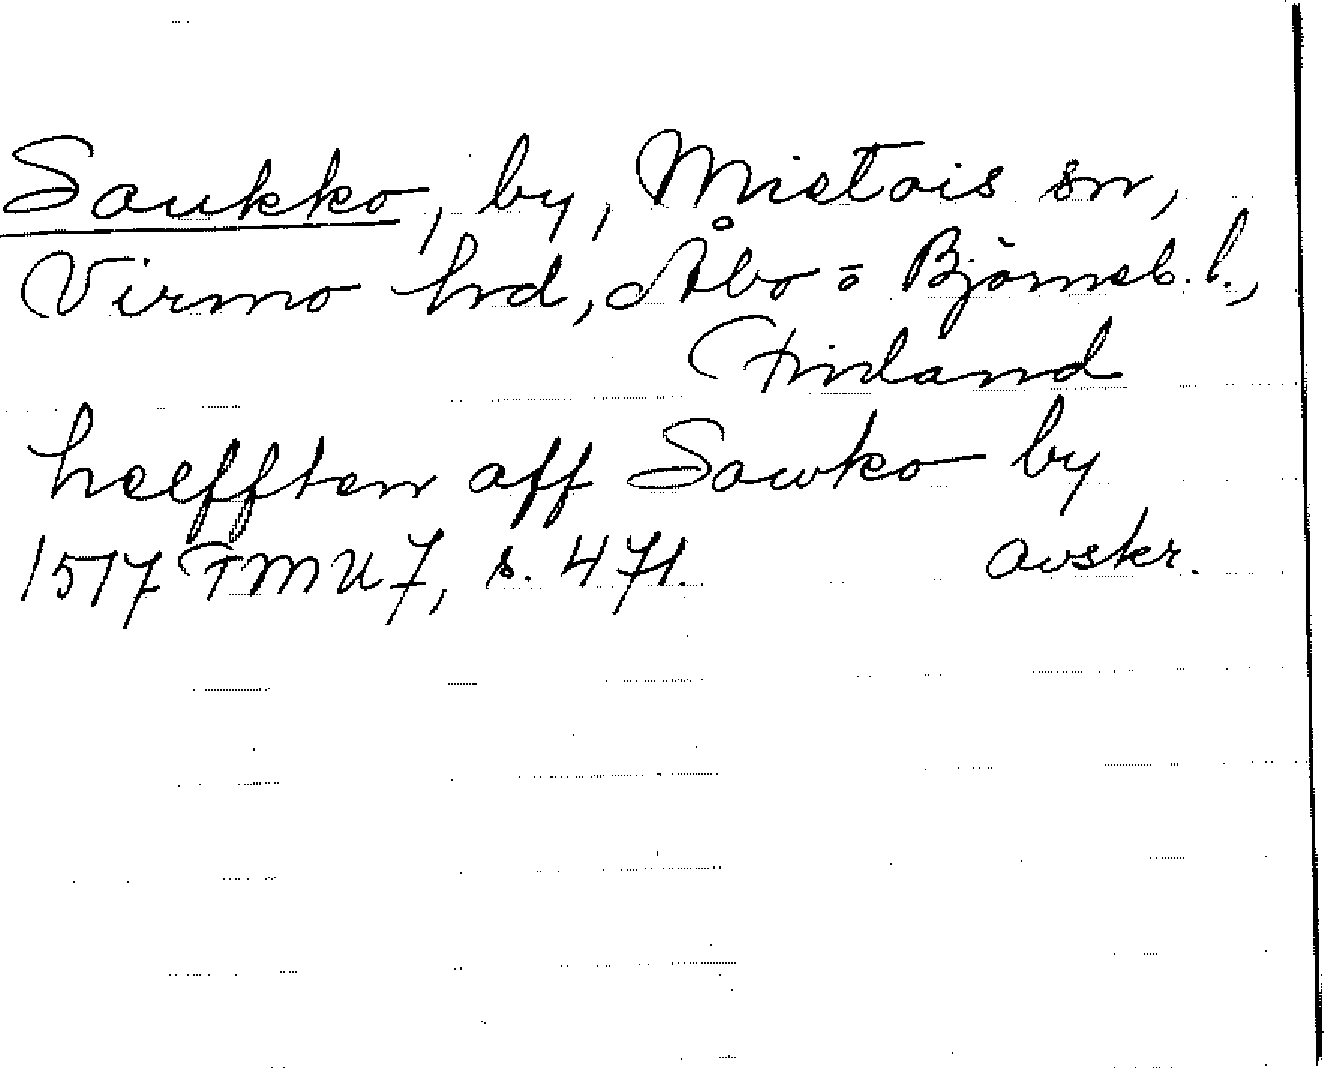 Saukko, by, Mietois sn,
Virmo hrd, Åbo = Björneb. l.,
Finland
helfften aff Sawko by
1517 FMU 7, s. 471. avskr.